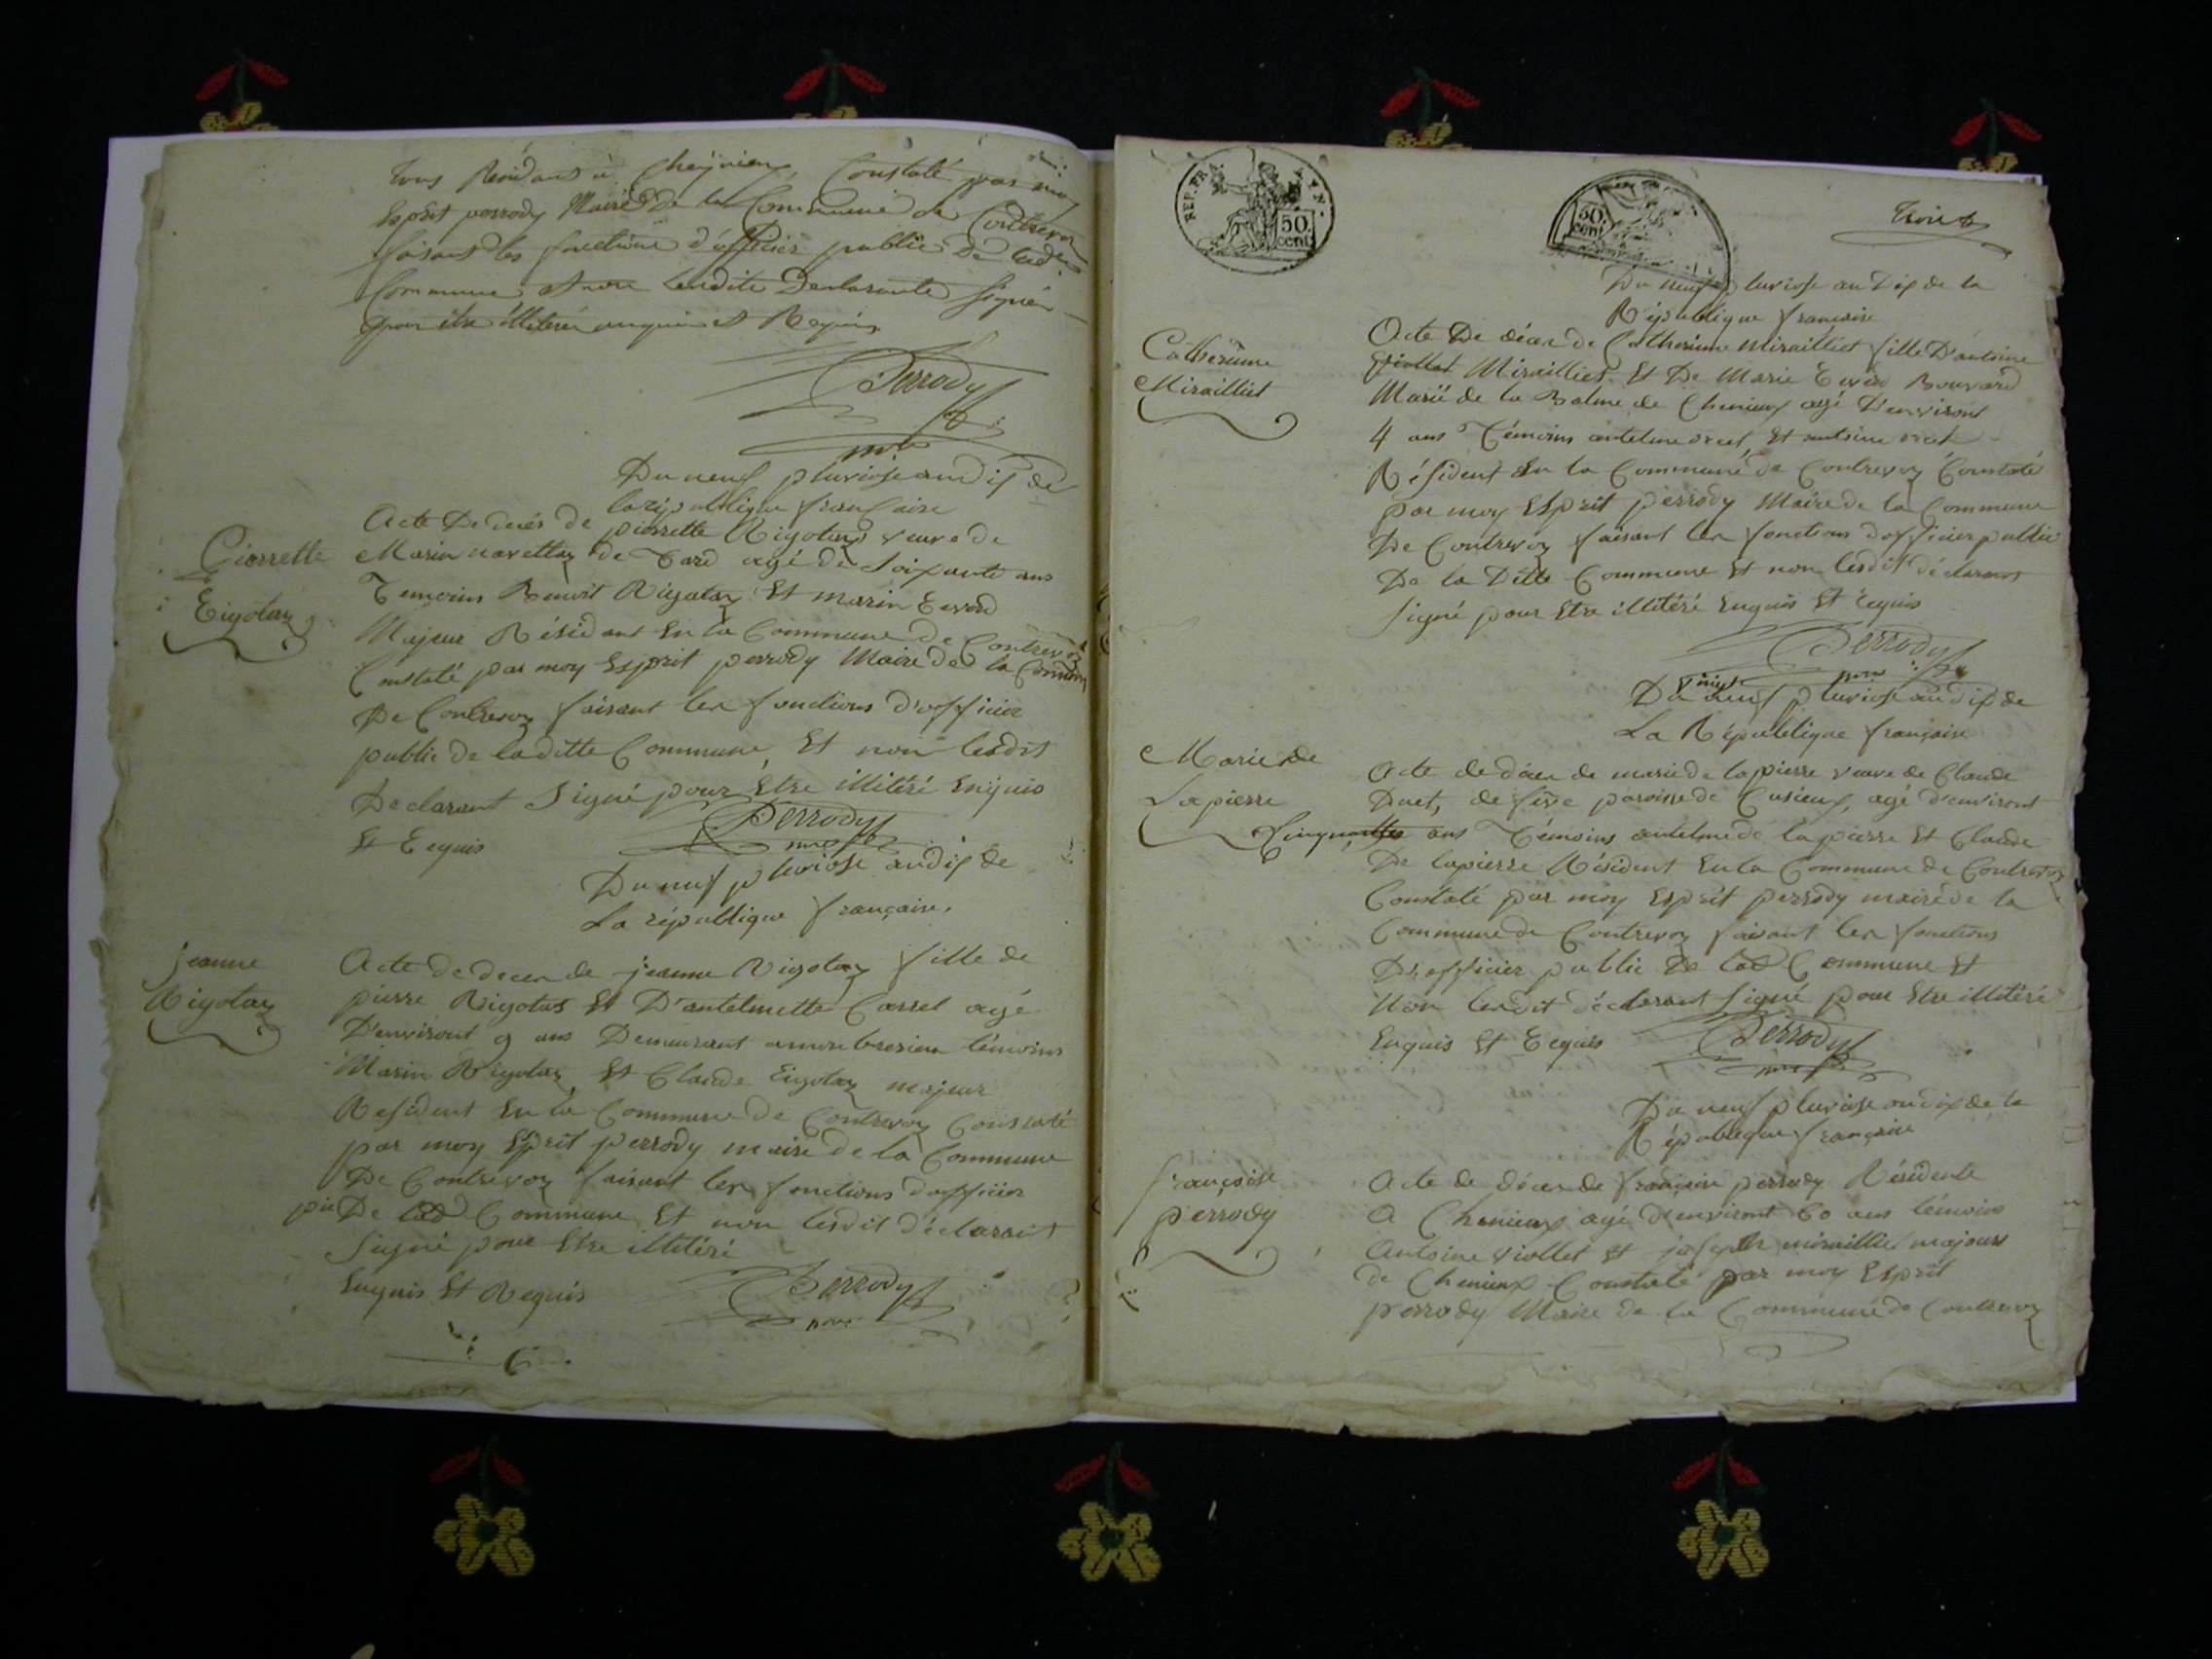 tous Résidants à Cheÿnieu, Constaté par moy
Esprit perrody Maire De la Commune de Contrevoz
faisant les fonctions d'officier public De lad.
Commune et non lesdits Declarants Signé
pour être illiteré enquis et Requis
Perrody
mre
Du neuf pluviose an dix de
la république francaise
Pierrette
Rigotaz
Acte De decès de pierrette Rigotaz veuve de
Marin navettaz de agé de Soixante ans
Temoins Benoit Rigotaz Et marin Evrard
Majeur Résidant En la Commune de Contrevoz
Constaté par moy Esprit perrody Maire de la Commune
De Contrevoz faisant les fonctions d'officier
public de laditte Commune, Et non lesdit
Declarant Signé pour Etre illitéré Enquis
Et Requis
Perrody
mre
Du neuf pluviose an dix de
La république française.
jeanne
Rigotaz
Acte de deces de jeanne Rigotaz fille de
pierre Rigotas Et D'antelmette Carrel agé
D'environt 9 ans Demeurant témoins
Marin Rigotaz Et Claude Rigotaz majeur
Resident En la Commune de Contrevoz Constaté
par moy Esprit perrody maire de la Commune
De Contrevoz faisant les fonctions d'officier
De lad Commune Et non lesdit déclarant
Signé pour Etre illitéré
Enquis Et Requis
Perrody
mre
REP. FR.
50. cent
AYN.
50. cent
trois
Du neuf pluviose an Dix de la
République francaise
Catherinne
Mirailliet
Acte De décès de Catherinne Mirailliet fille D'antoine
Viollet Mirailliet Et De Marie Bouvard
Marié de la Balme de Chenieux agé D'environt
4 ans Témoins antelme Et antoine
Résident En la Commune de Contrevoz Constaté
par moy Esprit perrody Maire de la Commune
De Contrevoz faisant les fonctions d'officier public
De la Ditte Commune Et non lesdit déclarant
Signé pour Etre illitéré Enquis Et Requis
Perrody
mre
Du neuf pluviose an dix de
La République française
Marie de
Lapierre
Acte de décès de marie de lapierre veuve de Claude
paroisse de Cusieux, agé d'environt
Cinquante ans Témoins antelme de lapierre Et Claude
De lapierre Résident En la Commune de Contrevoz
Constaté par moy Esprit perrody maire de la
Commune de Contrevoz faisant les fonctions
D'officier public De lad Commune Et
Non lesdit déclarant Signé pour Etre illitéré
Enquis Et Requis
Perrody
mre
Du neuf pluviose an dix de la
République française
françoise
perrody
Acte de décès de françoise perrody Résidente
A Chenieux agé d'environt 60 ans témoins
Antoine viollet Et joseph miraillet majeurs
de Chenieux Constaté par moy Esprit
perrody Maire de la Commune de Contrevoz